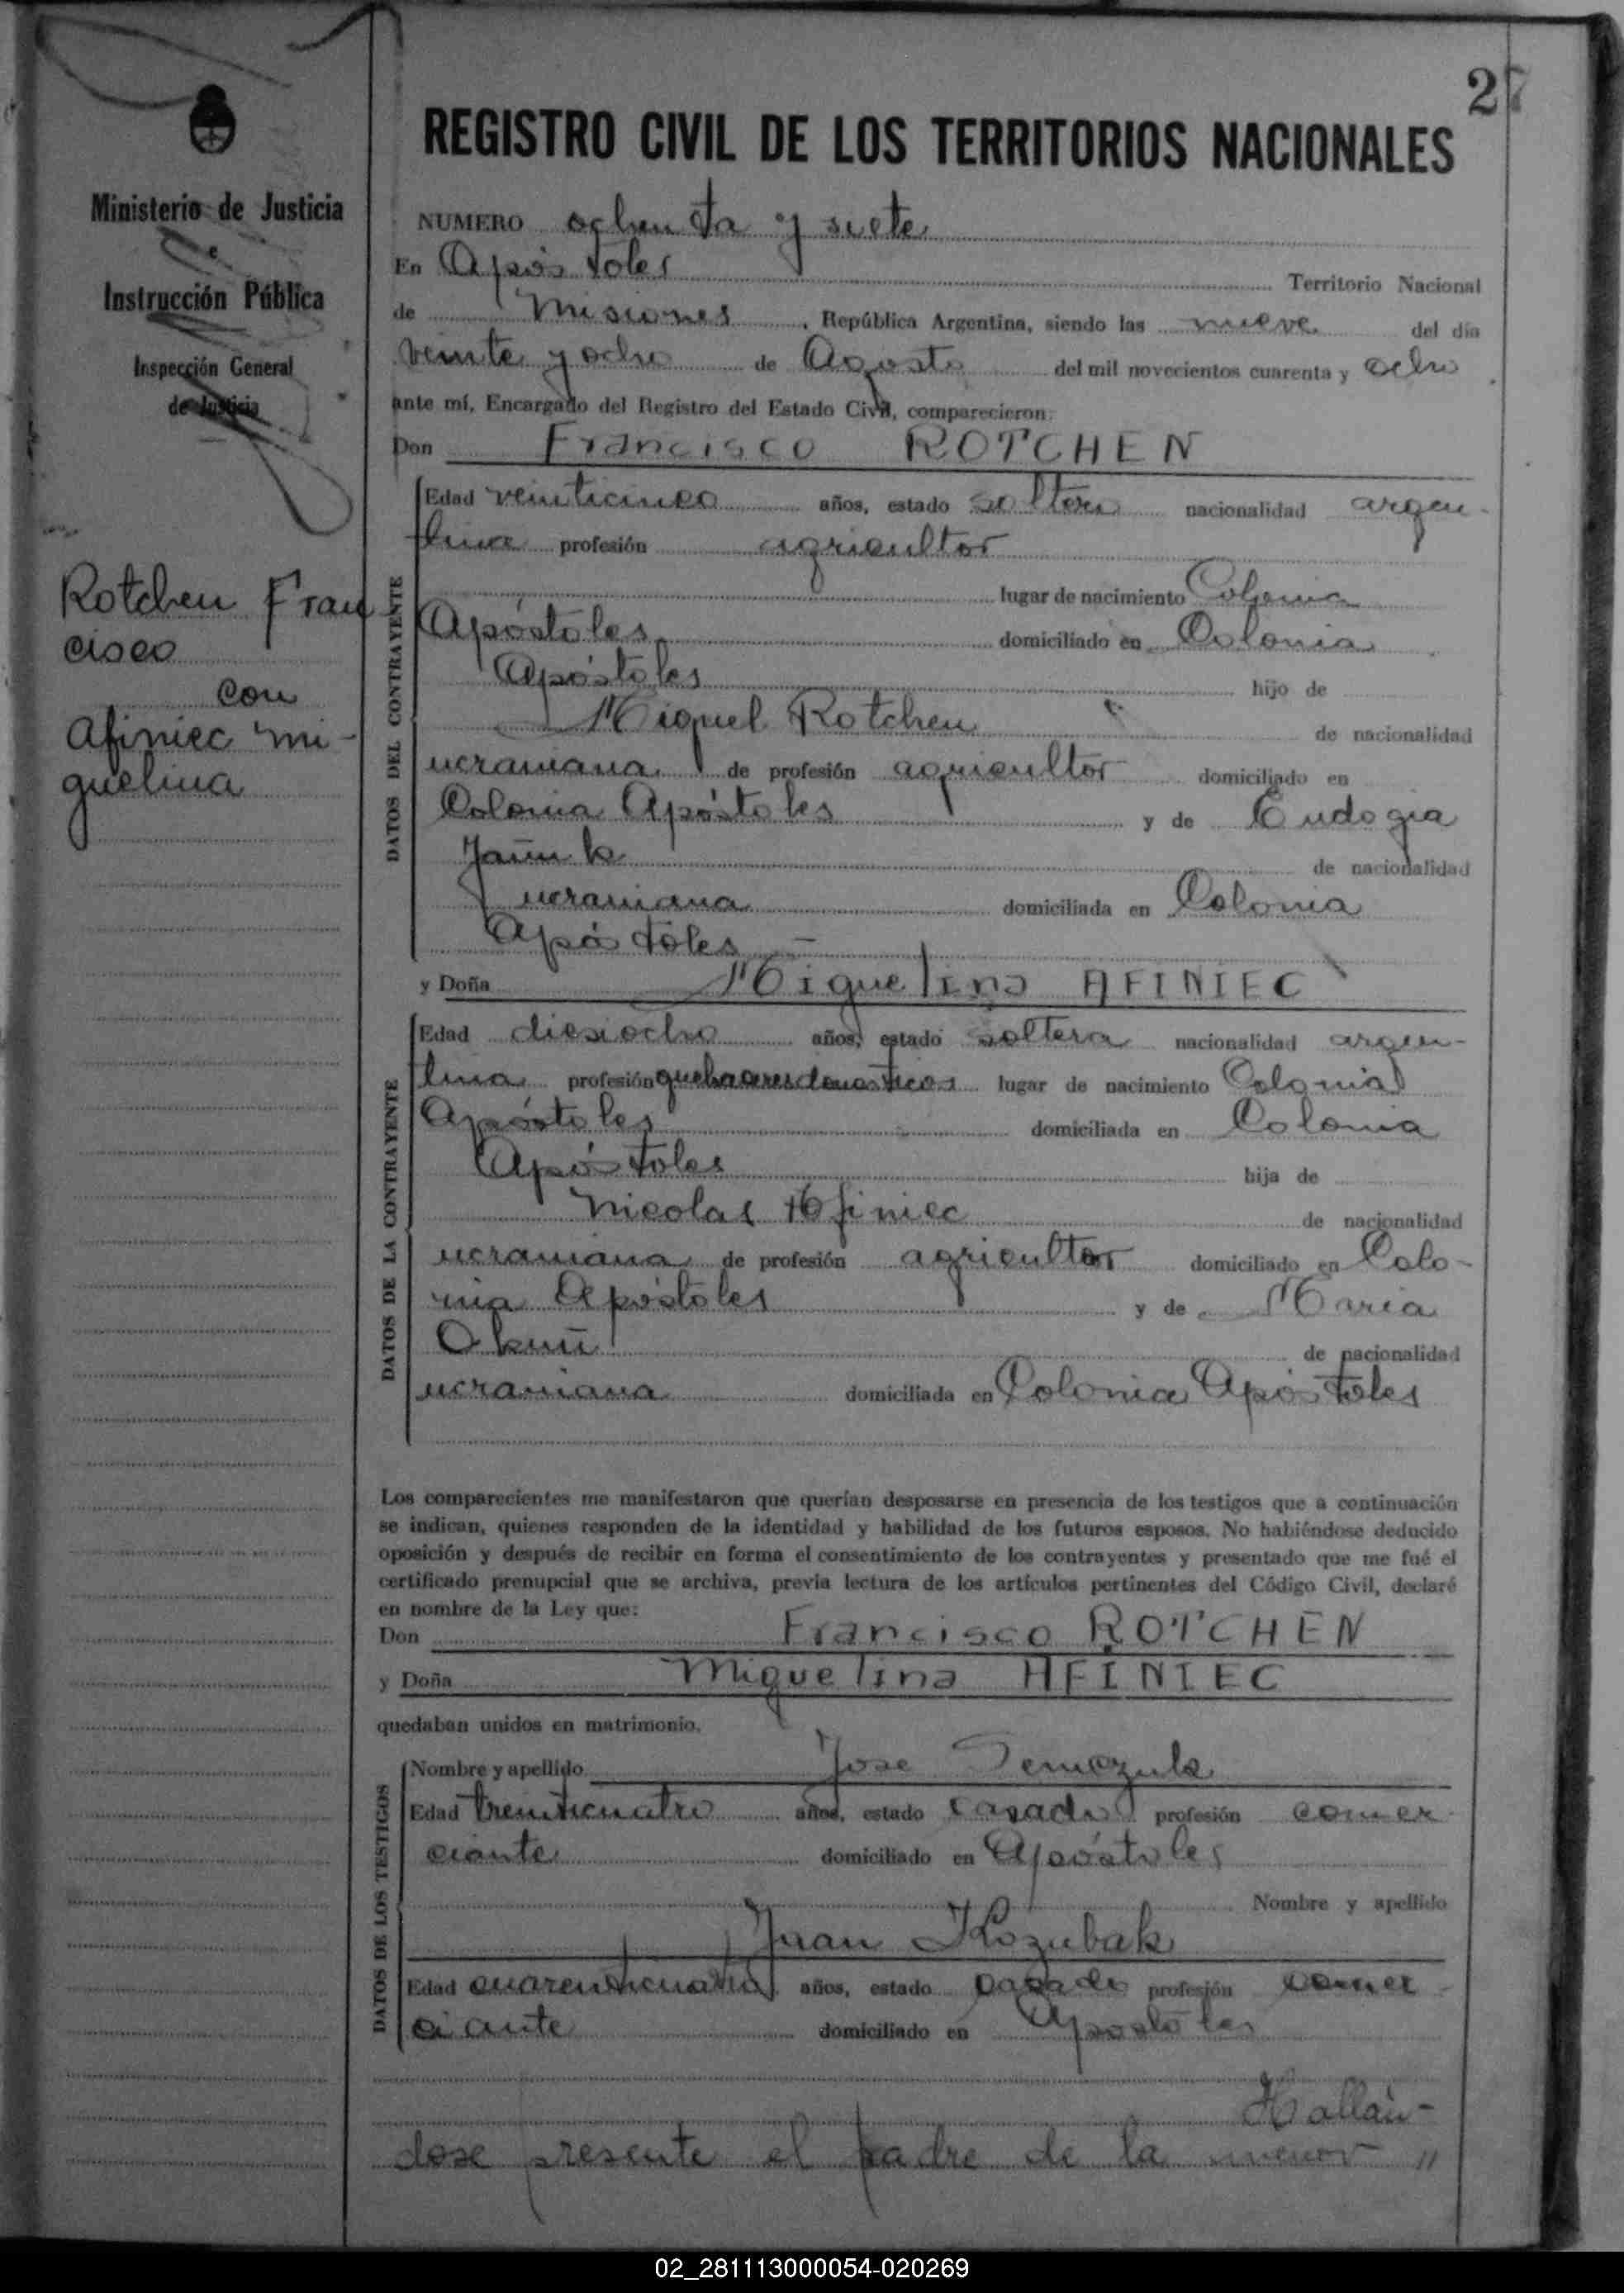 27
REGISTRO CIVIL DE LOS TERRITORIOS NACIONALES
Ministerio de Justicia
e
Instrucción Pública
Inspección General
de Justicia
Rotchen Fran
cisco
con
Afiniec Mi-
guelina
NUMERO ochenta y siete
En Apóstoles Territorio Nacional
de Misiones, República Argentina, siendo las nueve del día
veinte y ocho de Agosto del mil novecientos cuarenta y ocho.
ante mí, Encargado del Registro del Estado Civil, comparecieron:
Don Francisco ROTCHEN
DATOS DEL CONTRAYENTE
Edad veinticinco años, estado soltero nacionalidad argen-
tina profesión agricultor
lugar de nacimiento Colonia
Apóstoles domiciliado en Colonia
Apóstoles hijo de
Miguel Rotchen de nacionalidad
ucraniana de profesión agricultor domiciliado en
Colonia Apóstoles y de Eudogia
de nacionalidad
ucraniana domiciliada en Colonia
Apóstoles
y Doña Miguelina AFINIEC
DATOS DE LA CONTRAYENTE
Edad diesiocho años, estado soltera nacionalidad argen-
tina profesión quehaceres domesticos lugar de nacimiento Colonia
Apóstoles domiciliada en Colonia
Apóstoles hija de
Nicolas Afiniec de nacionalidad
ucraniana de profesión agricultor domiciliado en Colo-
nia Apóstoles y de Maria
de nacionalidad
ucraniana domiciliada en Colonia Apóstoles
Los comparecientes me manifestaron que querían desposarse en presencia de los testigos que a continuación
se indican, quienes responden de la identidad y habilidad de los futuros esposos. No habiéndose deducido
oposición y después de recibir en forma el consentimiento de los contrayentes y presentado que me fué el
certificado prenupcial que se archiva, previa lectura de los artículos pertinentes del Código Civil, declaré
en nombre de la Ley que:
Don Francisco ROTCHEN
y Doña Miguelina AFINIEC
quedaban unidos en matrimonio.
DATOS DE LOS TESTIGOS
Nombre y apellido Jose
Edad treinticuatro años, estado casado profesión comer
ciante domiciliado en Apóstoles
Nombre y apellido
Juan Kozubak
Edad cuarenticuatro años, estado casado profesión comer-
ciante domiciliado en Apostoles
Hallán-
dose presente el padre de la menor "
02_281113000054-020269